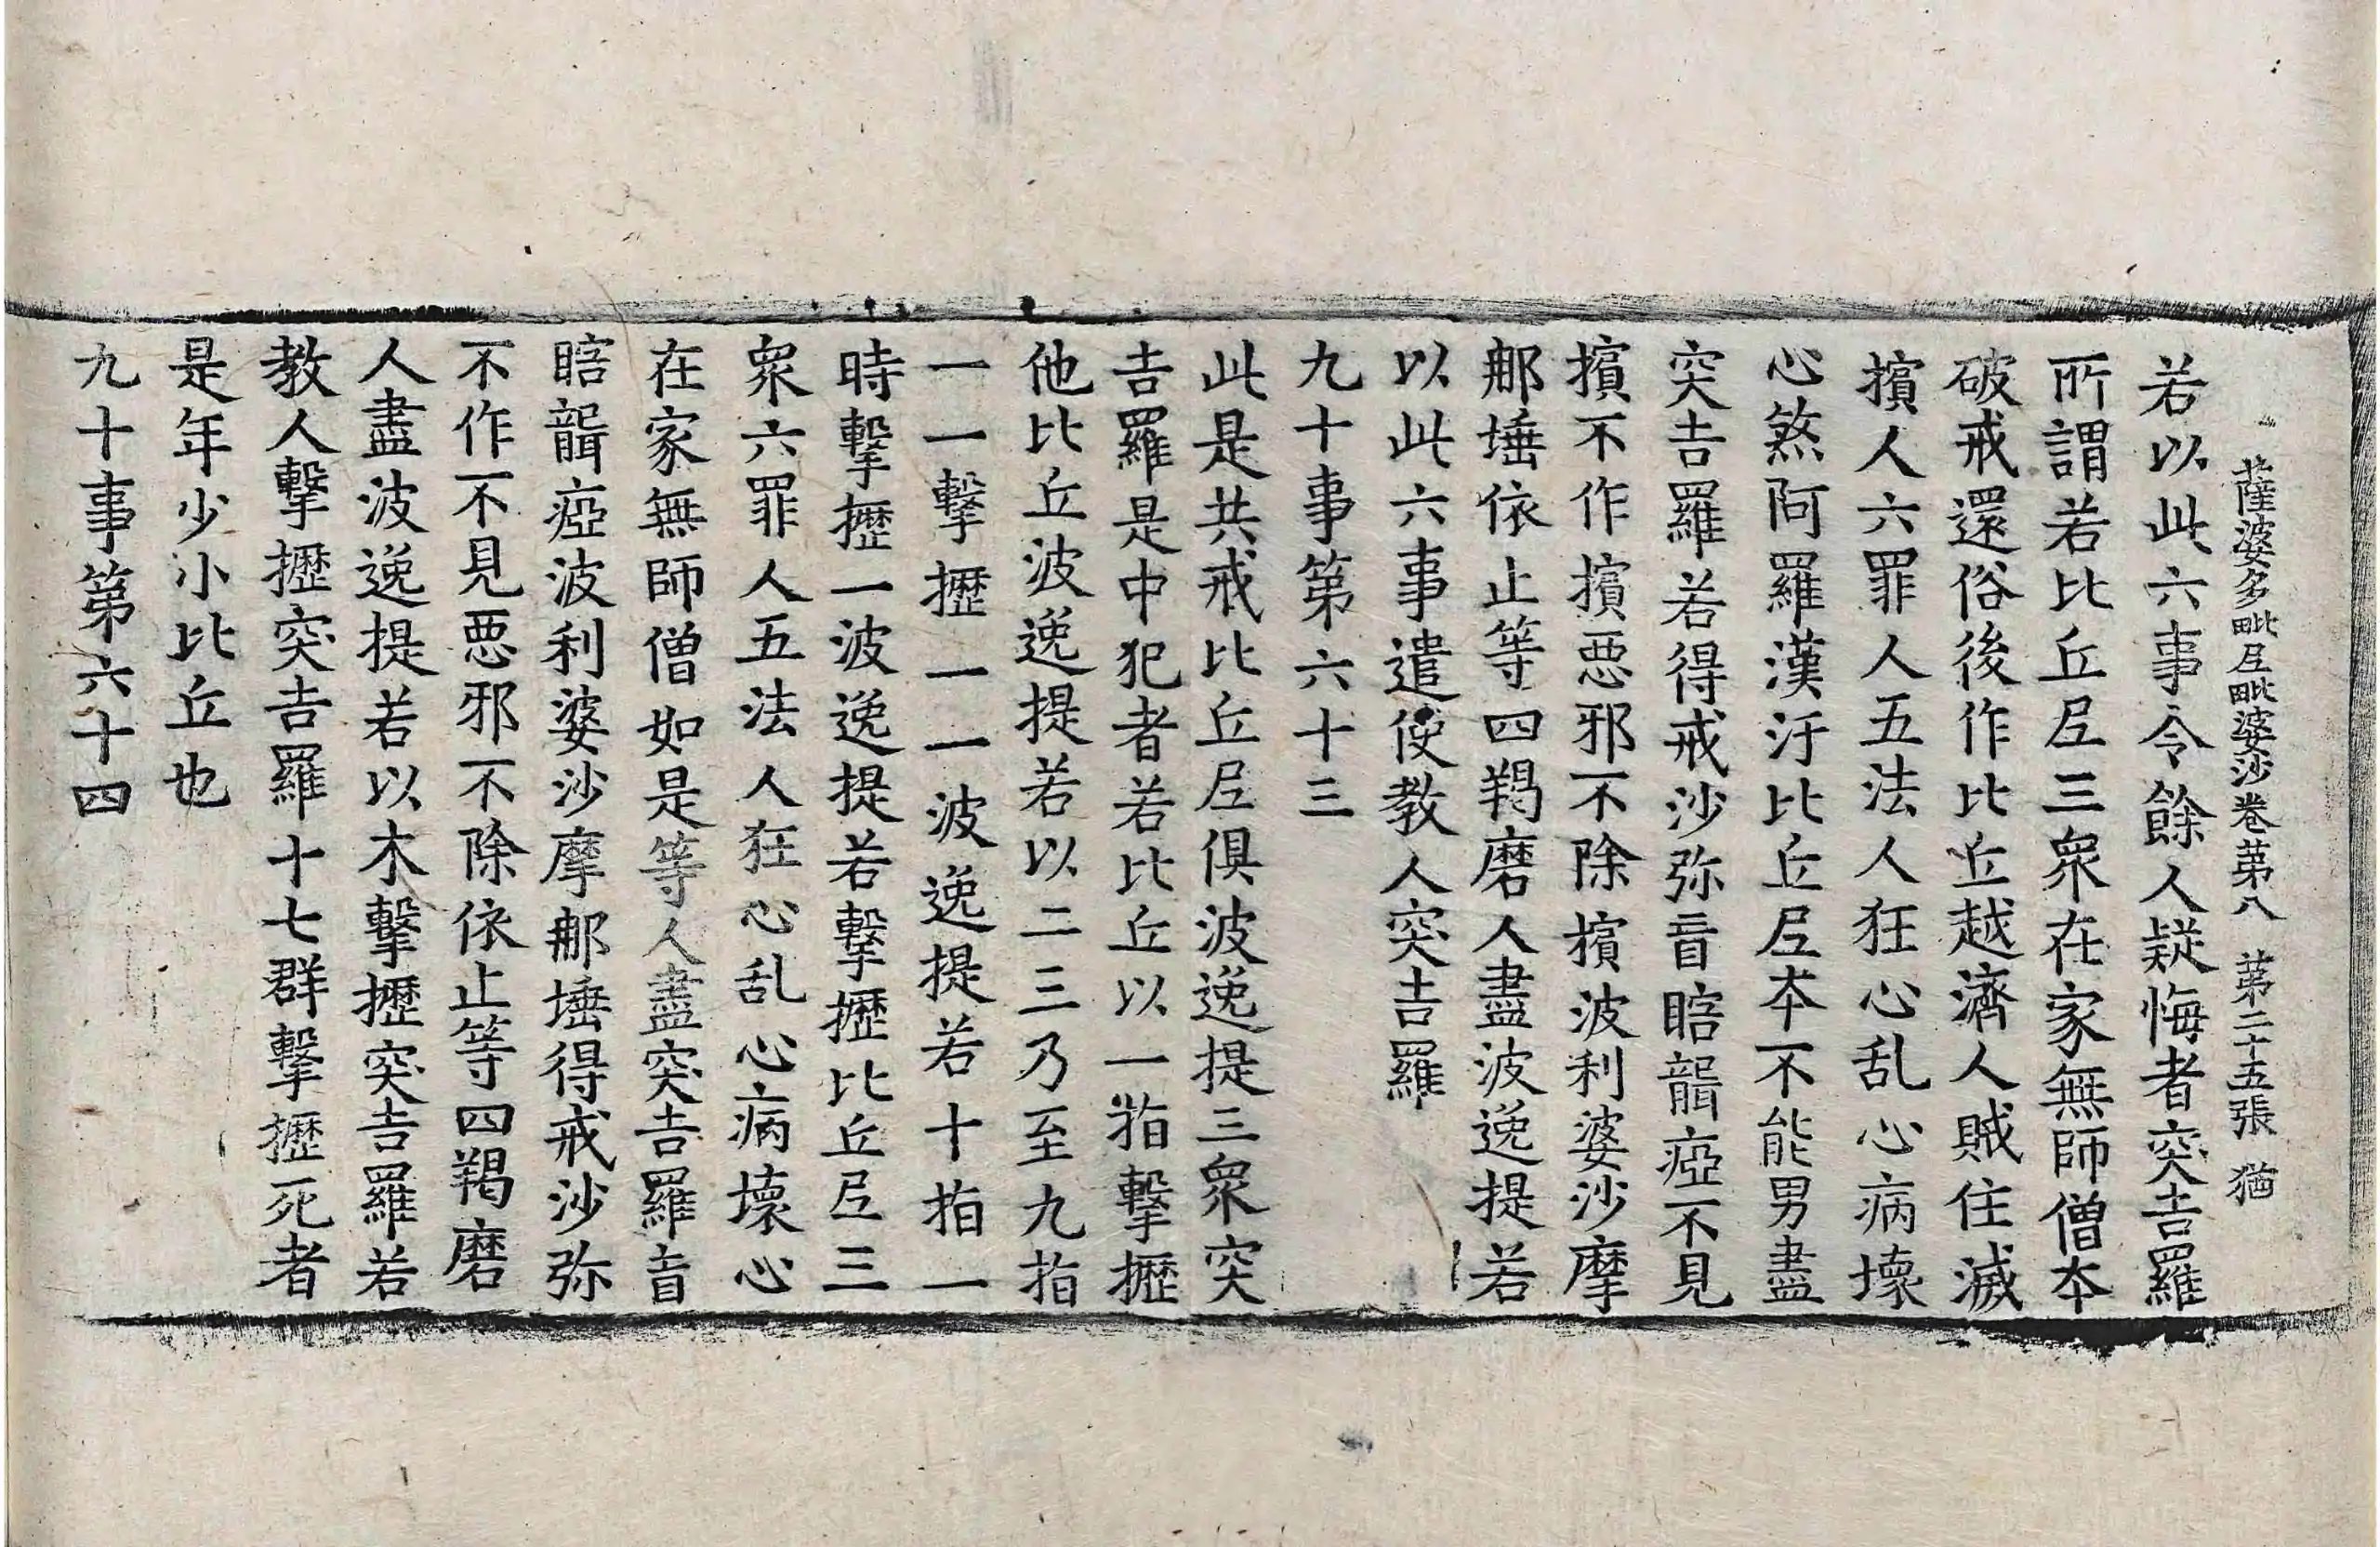 薩婆多毗尼毗婆沙卷第八 第二十五張 猶
若以此六事令餘人疑悔者突吉羅
所謂若比丘尼三眾在家無師僧本
破戒還俗後作比丘越濟人賊住滅
擯人六罪人五法人狂心乱心病壞
心煞阿羅漢汙比丘尼本不能男盡
突吉羅若得戒沙弥盲瞎聾瘂不見
擯不作擯惡邪不除擯波利婆沙摩
那埵依止等四羯磨人盡波逸提若
以此六事遣使教人突吉羅
九十事第六十三
此是共戒比丘尼俱波逸提三眾突
吉羅是中犯者若比丘以一指擊攊
他比丘波逸提若以二三乃至九指
一一擊攊一一波逸提若十指一
時擊攊一波逸提若擊攊比丘尼三
眾六罪人五法人狂心乱心病壞心
在家無師僧如是等人盡突吉羅盲
瞎聾瘂波利婆沙摩那埵得戒沙弥
不作不見惡邪不除依止等四羯磨
人盡波逸提若以木擊攊突吉羅若
教人擊攊突吉羅十七群擊攊死者
是年少小比丘也
九十事第六十四